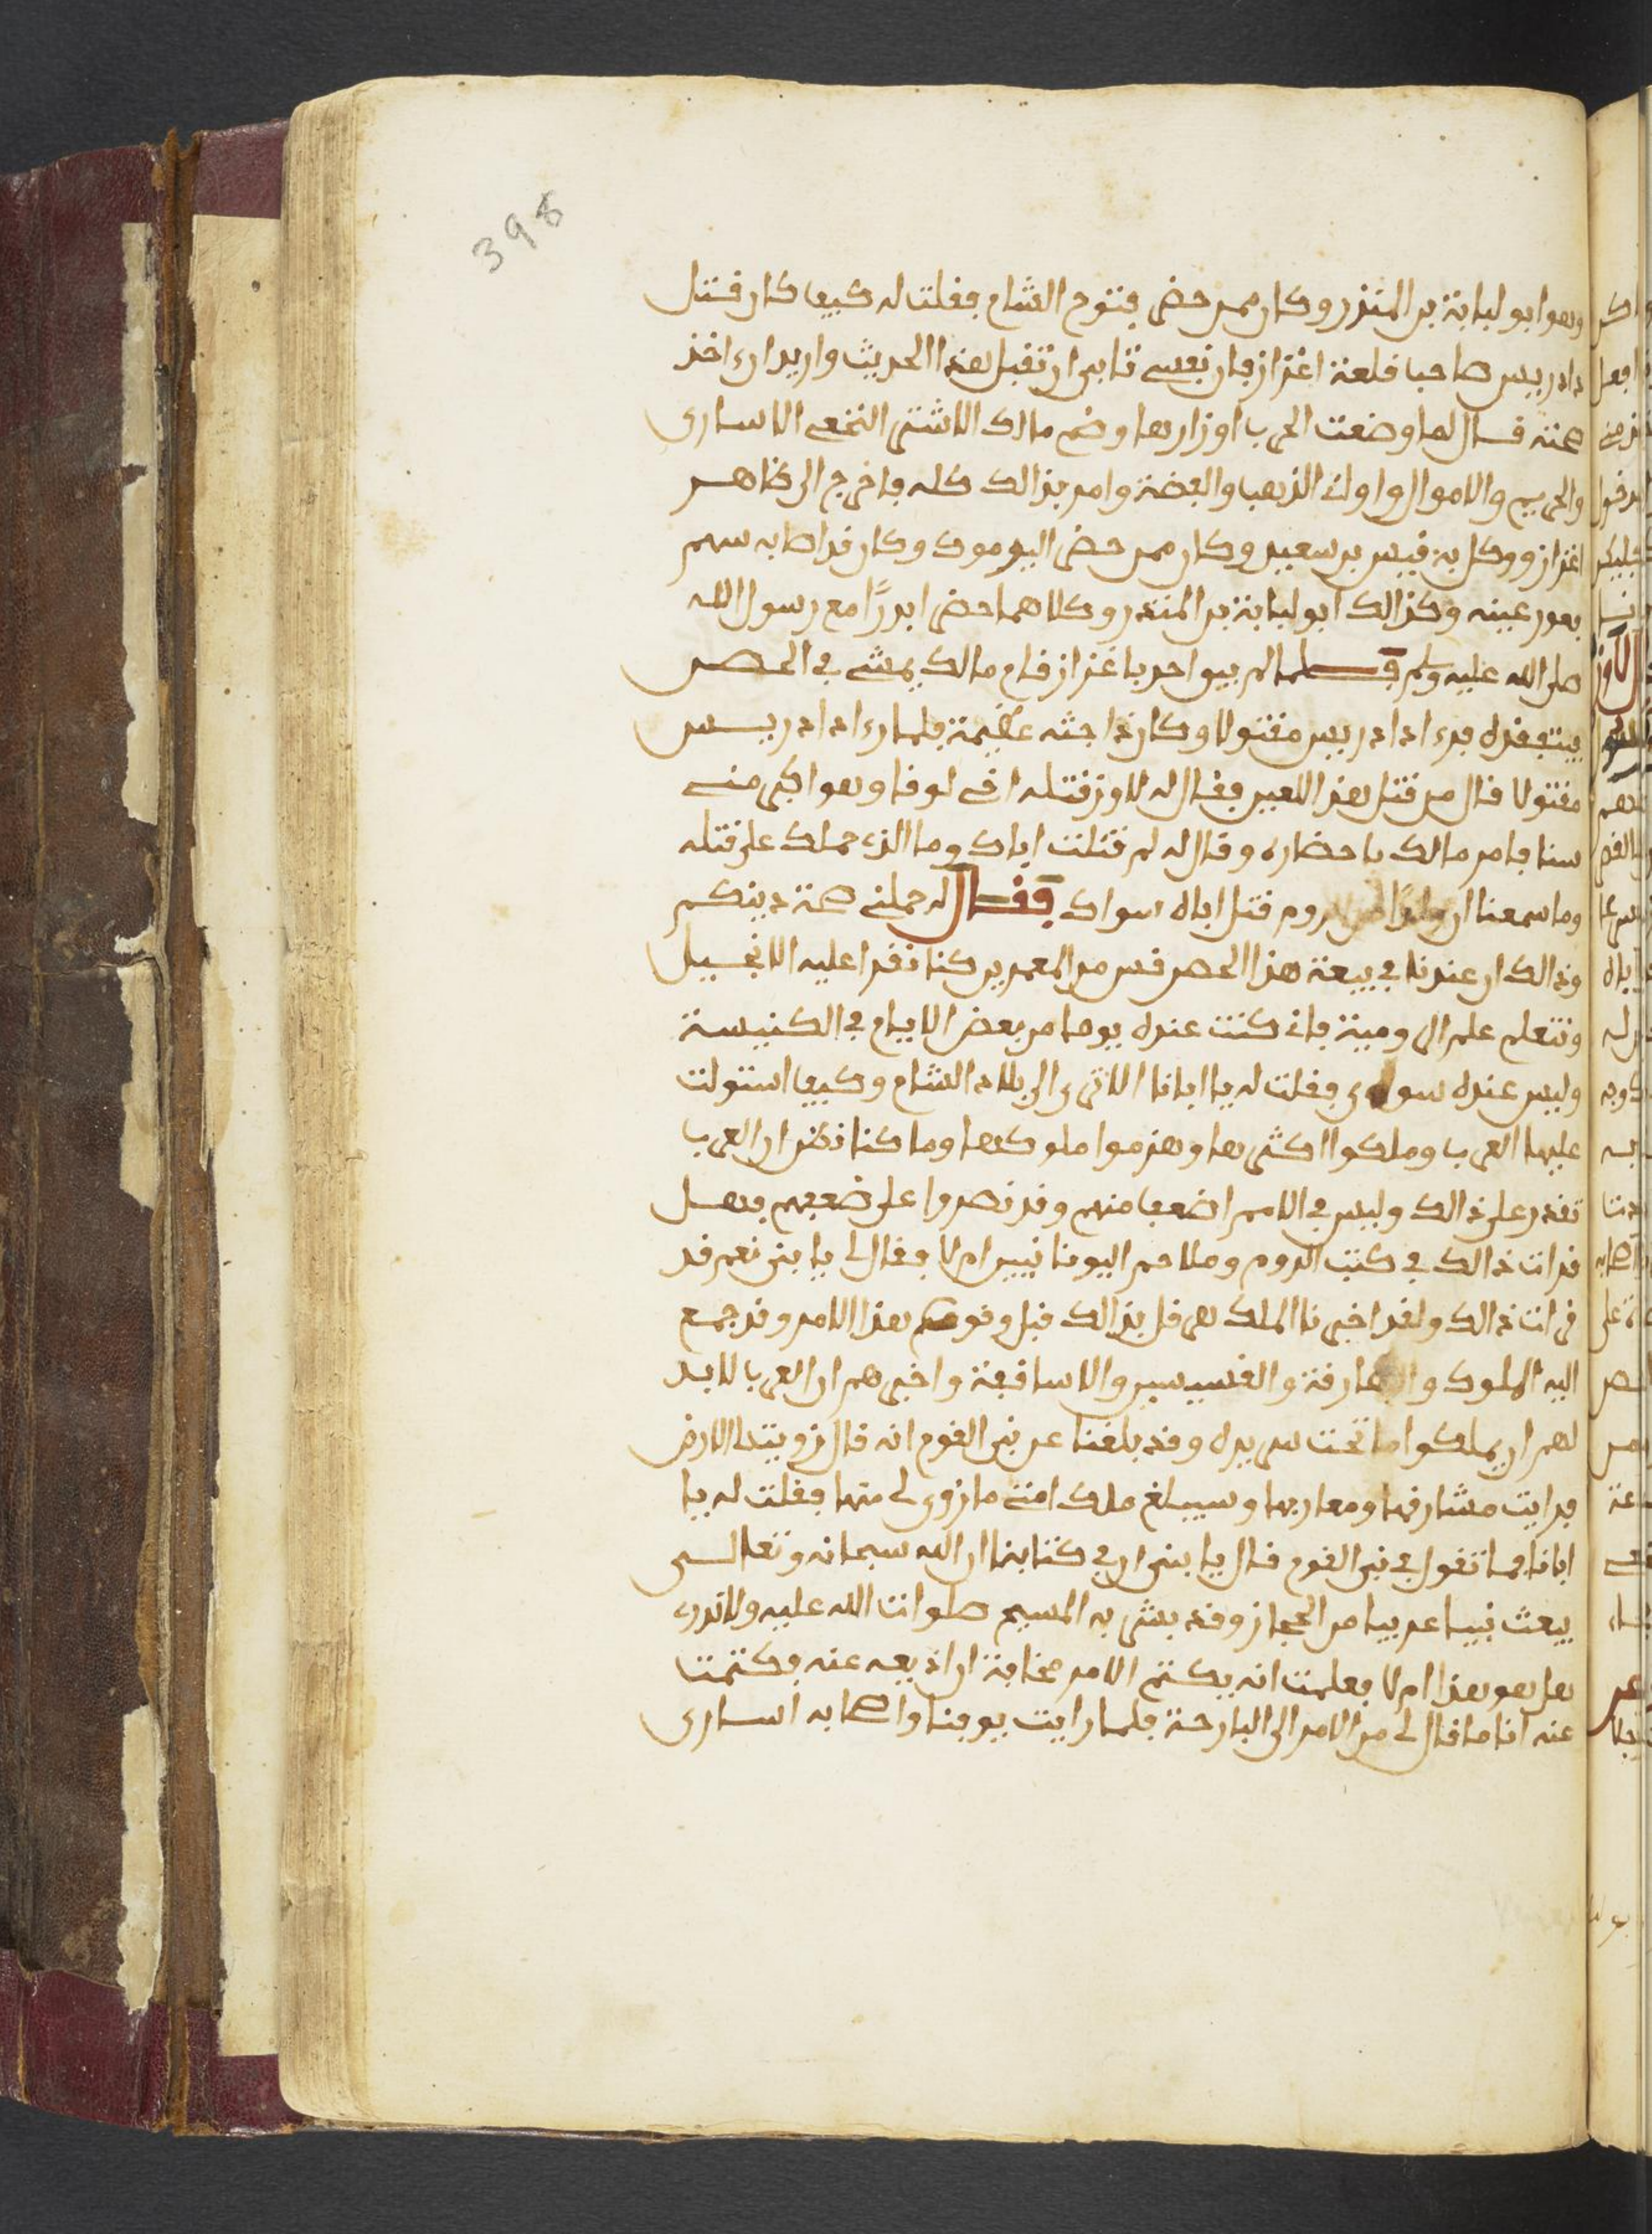 398
وهو ابو لبابة بن المنذر وكان ممن حضر فتوح الشام فقلت له كيف كان قتل
دادريس صاحب قلعة اعزاز فان نفسي تابى ان تقبل هذا الحديث واريد ارى اخذ
صحته قال لما وضعت الحرب اوزارها وضم مالك الاشتر النخعي الاسارى
والحريم والاموال واواني الذهب والفضة وامر بذالك كله فاخرج الى ظاهر
اعزاز ووكل به قيس بن سعيد وكان ممن حضر اليرموك وكان قد اصابه سهم
بعور عينه وكذالك ابو لبابة بن المنذر وكلاهما حضرا بدرًا مع رسول الله
صلى الله عليه وسلم قال فلما لم يبق احد باعزاز قام مالك يمشي في الحصن
يتفقده فرءا دادريس مقتولا وكان ذا جثه عظيمة فلما رءا دادريس
مقتولا قال من قتل هذا اللعين فقال له لاوز قتله اخي لوقا وهو اكبر مني
سنا فامر مالك باحضاره وقال له لم قتلت اباك وما الذي حملك على قتله
وما سمعنا ان ولدًا من الروم قتل اباه سواك فقال له حملني صحة دينكم
وذالك ان عندنا في بيعة هذا الحصن قس من المعمرين كنا نقرا عليه الانجيل
ونتعلم علم الرومية فاني كنت عنده يوما من بعض الايام في الكنيسة
وليس عنده سوى فقلت له يا ابانا الا ترى الى بلاد الشام وكيف استولت
عليها العرب وملكوا اكثرها وهزموا ملوكها وما كنا نظن ان العرب
تقدر على ذالك وليس في الامم اضعف منهم وقد نصروا على ضعفهم فهل
قرات ذالك في كتب الروم وملاحم اليونانيين ام لا فقال لي يا بني نعم قد
قرات ذالك ولقد اخبرنا الملك هرقل بذالك قبل وقوع هذا الامر وقد جمع
اليه الملوك والبطارقة والقسيسين والاساقفة واخبرهم ان العرب لا بد
لهم ان يملكوا ما تحت سريره وقد بلغنا عن نبي القوم انه قال زويت لي الارض
فرايت مشارقها ومغاربها وسيبلغ ملك امتي ما زوى لي منها فقلت له يا
ابانا فما تقول في نبي القوم قال يا بني ان في كتابنا ان الله سبحانه وتعالى
يبعث نبيا عربيا من الحجاز وقد بشر به المسيح صلوات الله عليه ولا ندري
هل هو هذا ام لا فعلمت انه يكتم الامر مخافة ان اذيعه عنه فكتمت
عنه انا ما قال لي من الامر الى البارحة فلما رايت يوقنا واصحابه اسارى